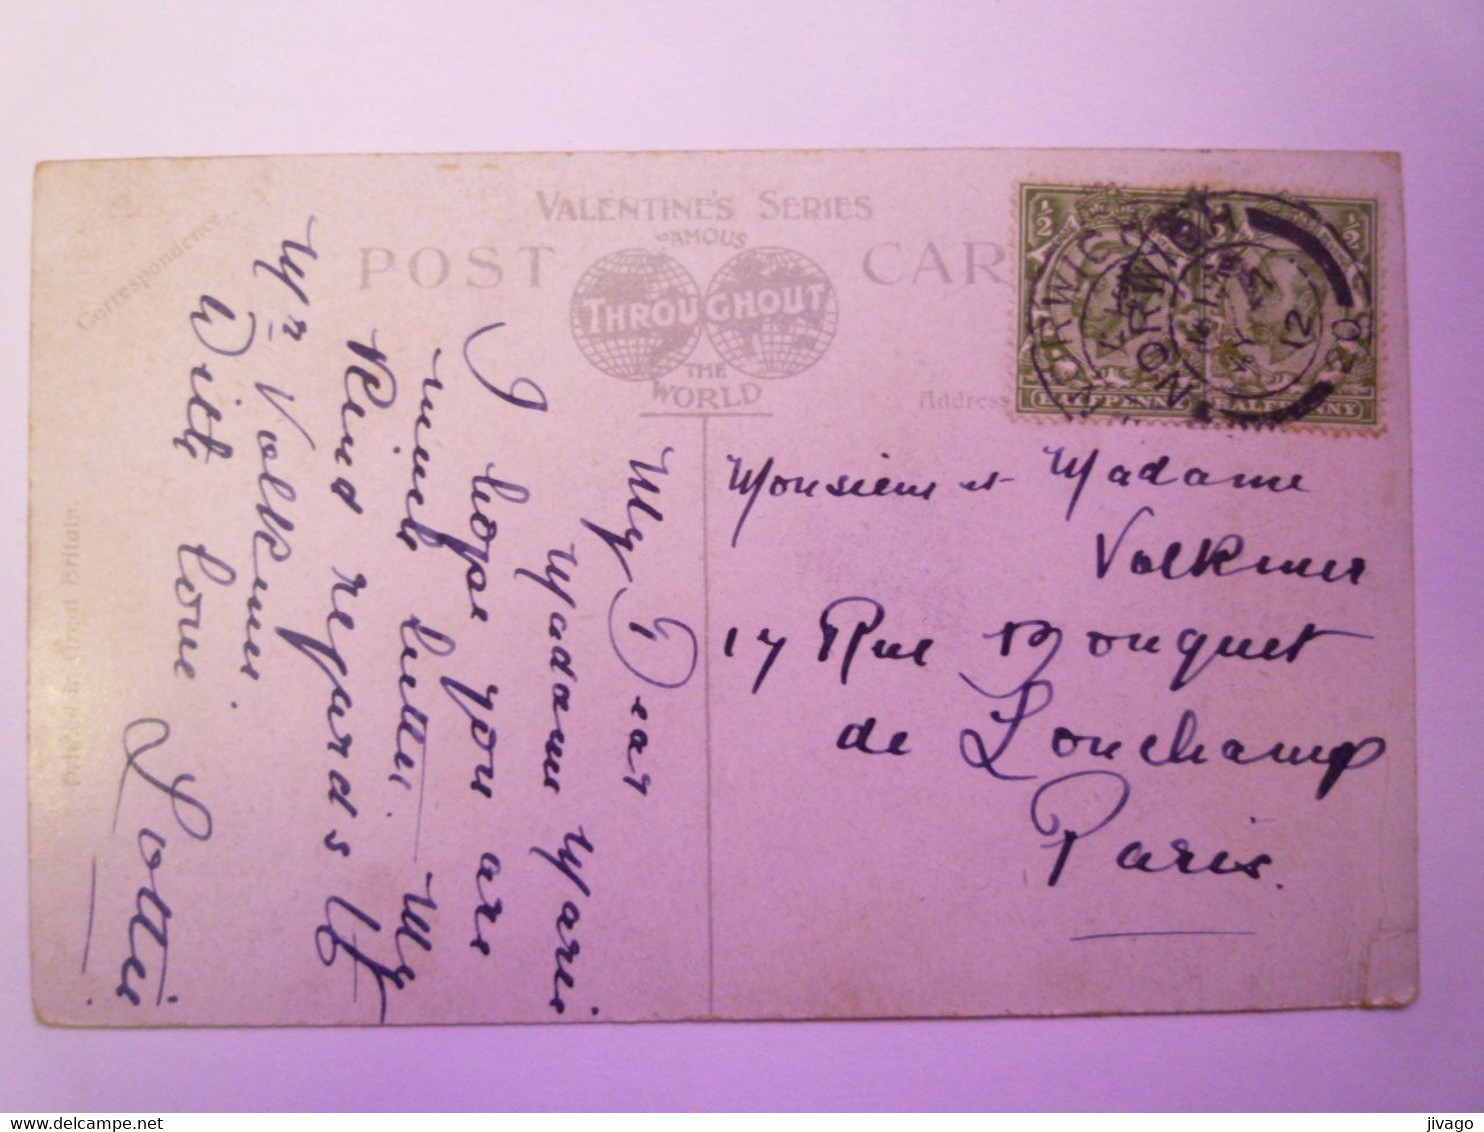 VALENTINE'S SERIES
FAMOUS
POST CAR
THROUGHOUT
THE
WORLD
Correspondence.
Address
Printed in Great Britain.
1/2 1/2
HALFPENNY HALFPENNY
NORWOOD
12
20
My Dear
Madame Marie
I hope you are
much better. My
Kind regards to
Mr Volkmer.
With love
Lottie
Monsieur et Madame
Volkmer
17 Rue Bouquet
de Lonchamp
Paris.
jivago